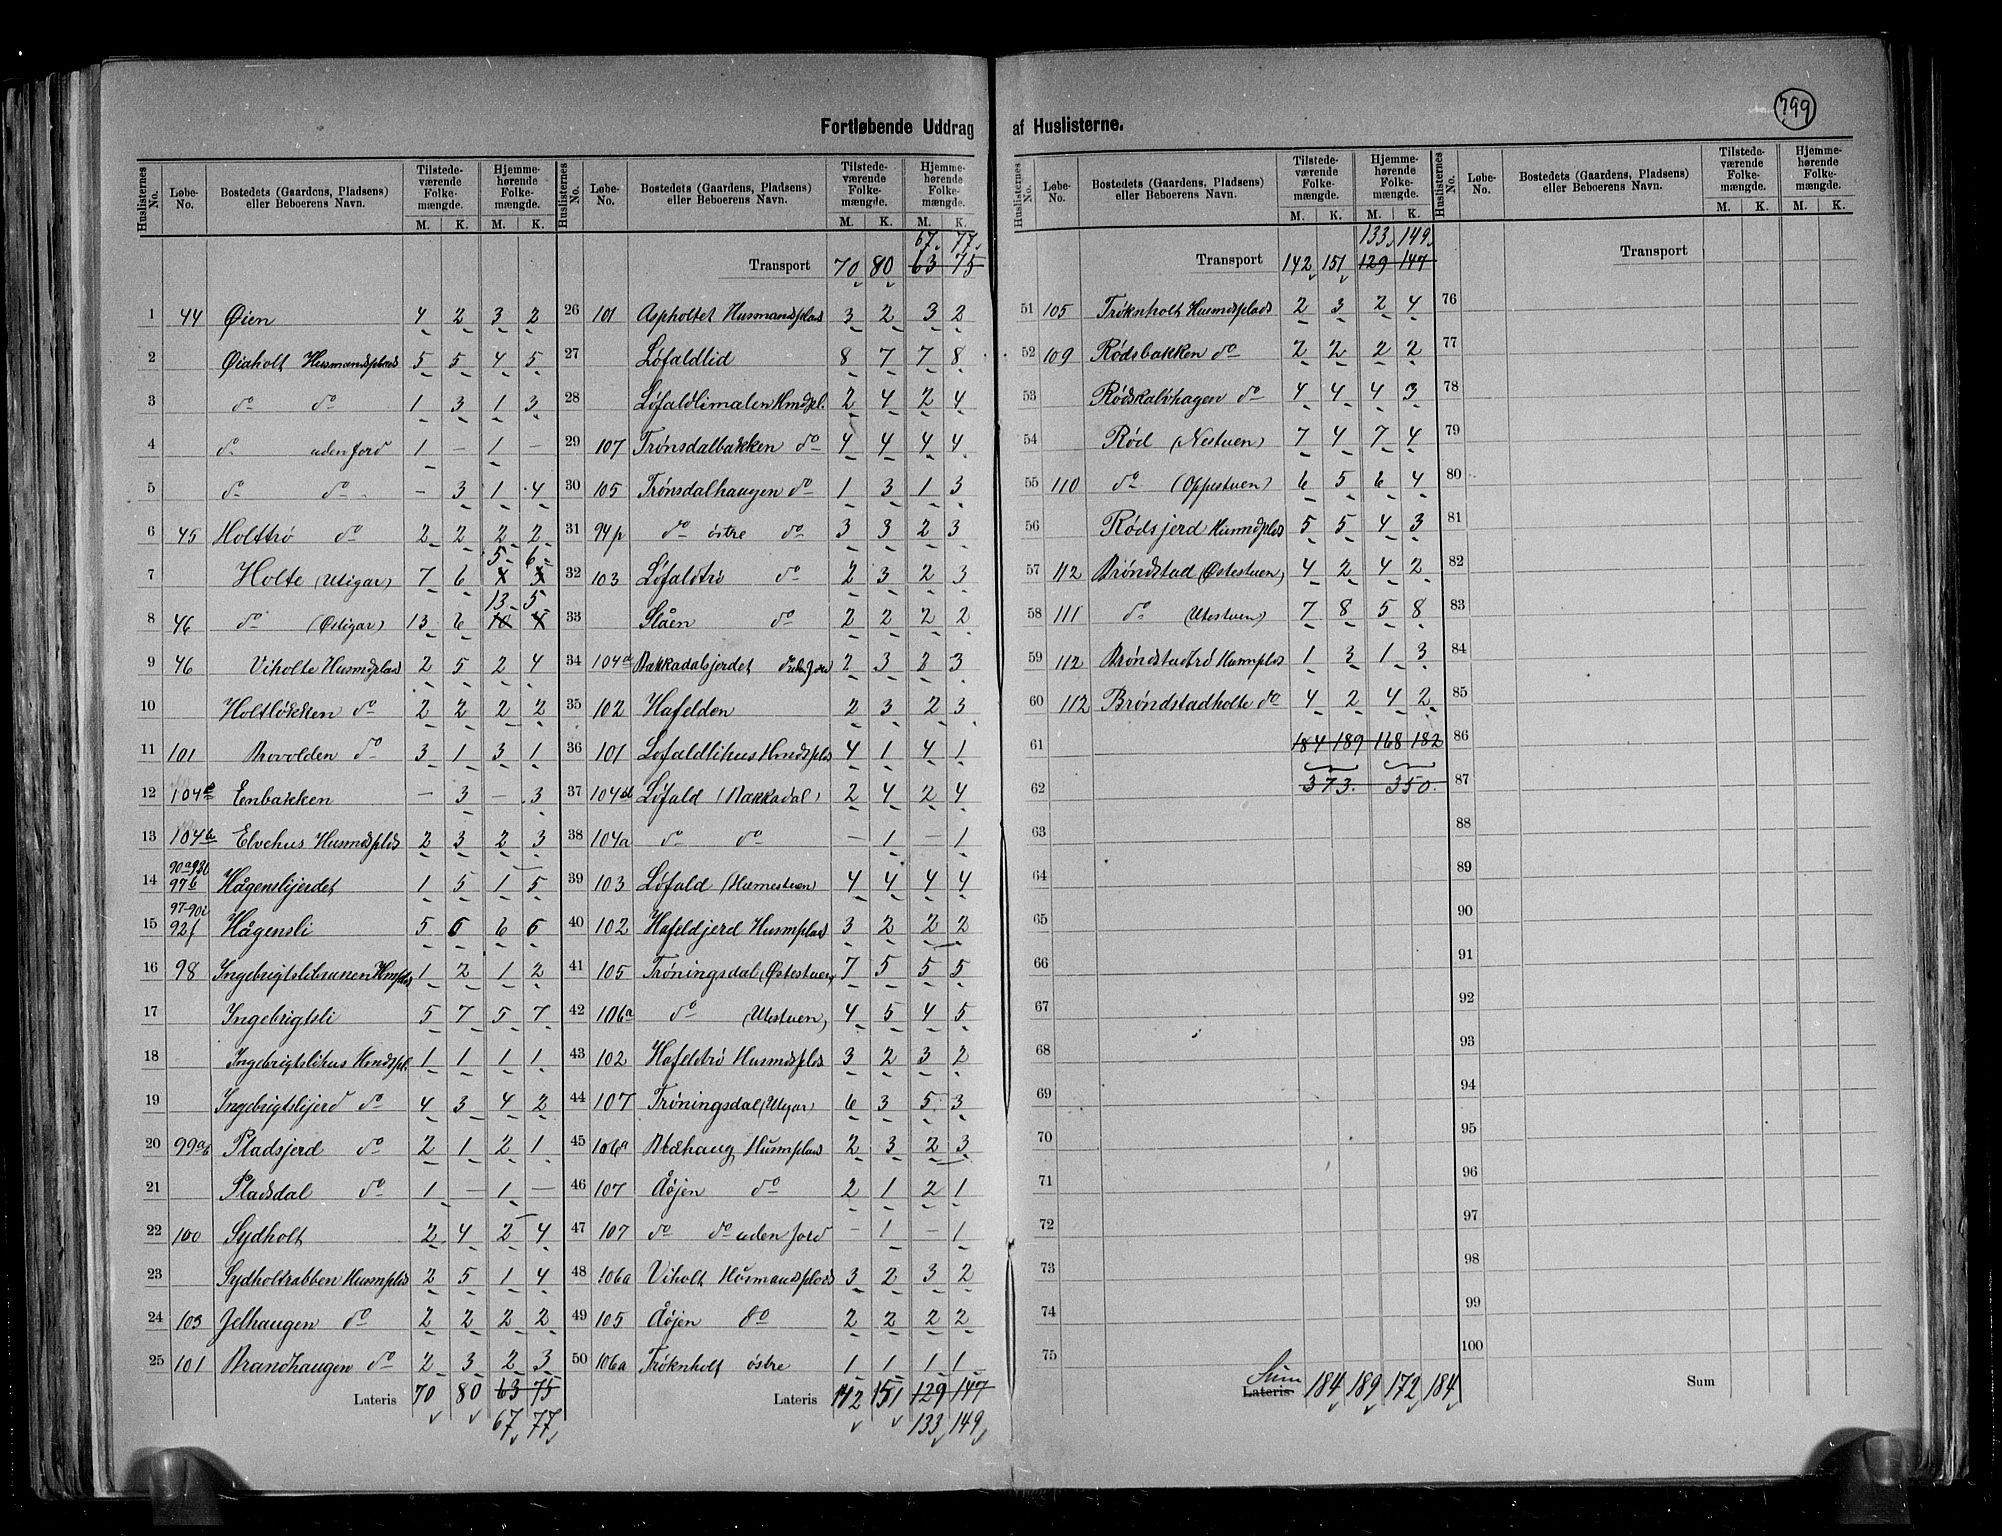 799
Fortløbende Uddrag af Huslisterne.
Huslisternes No. Løbe-No. Bostedets (Gaardens, Pladsens) eller Beboerens Navn. Tilstedeværende Folkemængde. M. K. Hjemmehørende Folkemængde. M. K.
1 44 Øien 4 2 3 2
2 Øiaholt Husmandsplads 5 5 4 5
3 do do 1 3 1 3
4 do uden jord 1 — 1 —
5 do do — 3 1 4
6 45 Holttrø do 2 2 2 2
5 6
7 Holte (Utigar) 7 6
13 5
8 46 do (Østigar) 13 6 10
9 46 Viholte Husmdsplads 2 5 2 4
10 Holtløkken do 2 2 2 2
11 101 Brovolden do 3 1 3 1
12 104 Eenbakken — 3 — 3
13 104b Elvehus Husmdsplds 2 3 2 3
14 97b Hågenslijerdet 1 5 1 5
15 97-90i 92f Hågensli 5 6 6 6
16 98 Ingebrigtslitranen Hmplds 1 2 1 2
17 Ingebrigtsli 5 7 5 7
18 Ingebrigtslihus Hmdspl. 1 1 1 1
19 Ingebrigtslijerd do 4 3 4 2
20 99ab Pladsjerd do 2 1 2 1
21 Pladsdal do 1 — 1 —
22 100 Sydholt 2 4 2 4
23 Sydholtrabben Husmplds 2 5 1 4
24 103 Jelhaugen do 2 2 2 2
25 101 Brandhaugen do 2 3 2 3
Lateris 70 80 63 75
67 77
Huslisternes No. Løbe-No. Bostedets (Gaardens, Pladsens) eller Beboerens Navn. Tilstedeværende Folkemængde. M. K. Hjemmehørende Folkemængde. M. K.
67 77
Transport 70 80 63 75
26 101 Aspholtet Husmandsplads 3 2 3 2
27 Løfaldlid 8 7 7 8
28 Løfaldlimalen Hmdspl. 2 4 2 4
29 107 Trønsdalbakken do 4 4 4 4
30 105 Trønsdalhaugen do 1 3 1 3
31 94p do østre do 3 3 2 3
32 103 Løfaldtrø do 2 3 2 3
33 Slåen do 2 2 2 2
34 104d Bakkadalsjerdet 2 3 2 3
35 102 Hafelden 2 3 2 3
36 101 Løfaldlihus Hmdsplds 4 1 4 1
37 104d Løfald (Bakkadal) 2 4 2 4
38 104a do do — 1 — 1
39 103 Løfald (Heimestuen) 4 4 4 4
40 102 Hafeldjerd Husmplads 3 2 2 2
41 105 Trøningsdal (Østestuen) 7 5 5 5
42 106a do (Utestuen) 4 5 4 5
43 102 Hafeldtrø Husmdsplds 3 2 3 2
44 107 Trøningsdal (Utigar) 6 3 5 3
45 106a Bedhaug Husmplads 2 3 2 3
46 107 Aøjen do 2 1 2 1
47 107 do do uden jord — 1 — 1
48 106a Viholt Husmandsplads 3 2 3 2
49 105 Aøjen do 2 2 2 2
50 106a Trøknholt østre 1 1 1 1
Lateris 142 151 129 147
133 149
Huslisternes No. Løbe-No. Bostedets (Gaardens, Pladsens) eller Beboerens Navn. Tilstedeværende Folkemængde. M. K. Hjemmehørende Folkemængde. M. K.
133 149
Transport 142 151 129 147
51 105 Trøknholt Husmdsplads 2 3 2 4
52 109 Rødsbakken do 2 2 2 2
53 Rødskalvhagen do 4 4 4 3
54 Rød (Nestuen) 7 4 7 4
55 110 do (Oppestuen) 6 5 6 4
56 Rødsjerd Husmdsplds 5 5 4 3
57 112 Brøndstad (Østestuen) 4 2 4 2
58 111 do (Utestuen) 7 8 5 8
59 112 Brøndstadtrø Husmplds 1 3 1 3
60 112 Brøndstadholte do 4 2 4 2
61 184 189 168 182
62 373. 350.
63
64
65
66
67
68
69
70
71
72
73
74
75
Sum
Lateris 184 189 172 184
Huslisternes No. Løbe-No. Bostedets (Gaardens, Pladsens) eller Beboerens Navn. Tilstedeværende Folkemængde. M. K. Hjemmehørende Folkemængde. M. K.
Transport
76
77
78
79
80
81
82
83
84
85
86
87
88
89
90
91
92
93
94
95
96
97
98
99
100
Sum